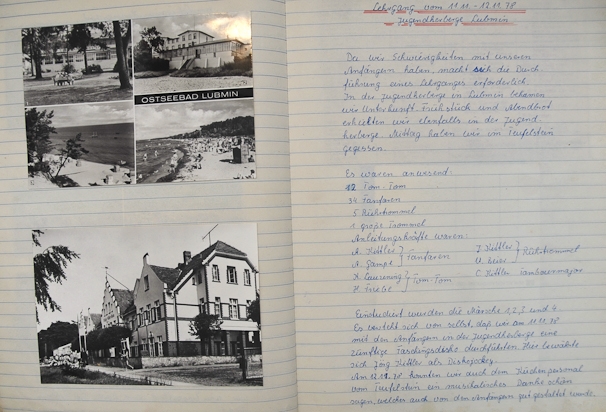 OSTSEEBAD LUBMIN
Lehrgang vom 11.11.-12.11.78
- Jugendherberge Lubmin -
Da wir Schwierigkeiten mit unseren
Anfängern haben, macht sich die Durch
führung eines Lehrganges erforderlich.
In der Jugendherberge in Lubmin bekamen
wir Unterkunft. Frühstück und Abendbrot
erhielten wir ebenfalls in der Jugend
herberge. Mittag haben wir im Teufelstein
gegessen.
Es waren anwesend:
12 Tam-Tam
34 Fanfaren
5 Rührtrommel
1 große Trommel
Anleitungskräfte waren:
A. Kittler
A. Gampe
Fanfaren
J. Kittler
U. Beise
Rührtrommel
Tam-Tam
C. Kittler Tambourmajor
Einstudiert wurden die Märsche 1, 2, 3 und 4.
Es versteht sich von selbst, daß wir am 11.11.78
mit den Anfängern in der Jugendherberge eine
zünftige Faschingsdisko durchführten. Hier bewährte
sich Jörg Kittler als Diskojockey.
Am 12.11.78 konnten wir auch dem Küchenpersonal
vom Teufelstein ein musikalisches Danke schön
sagen, welches auch von den Anfängern gut gestaltet wurde.